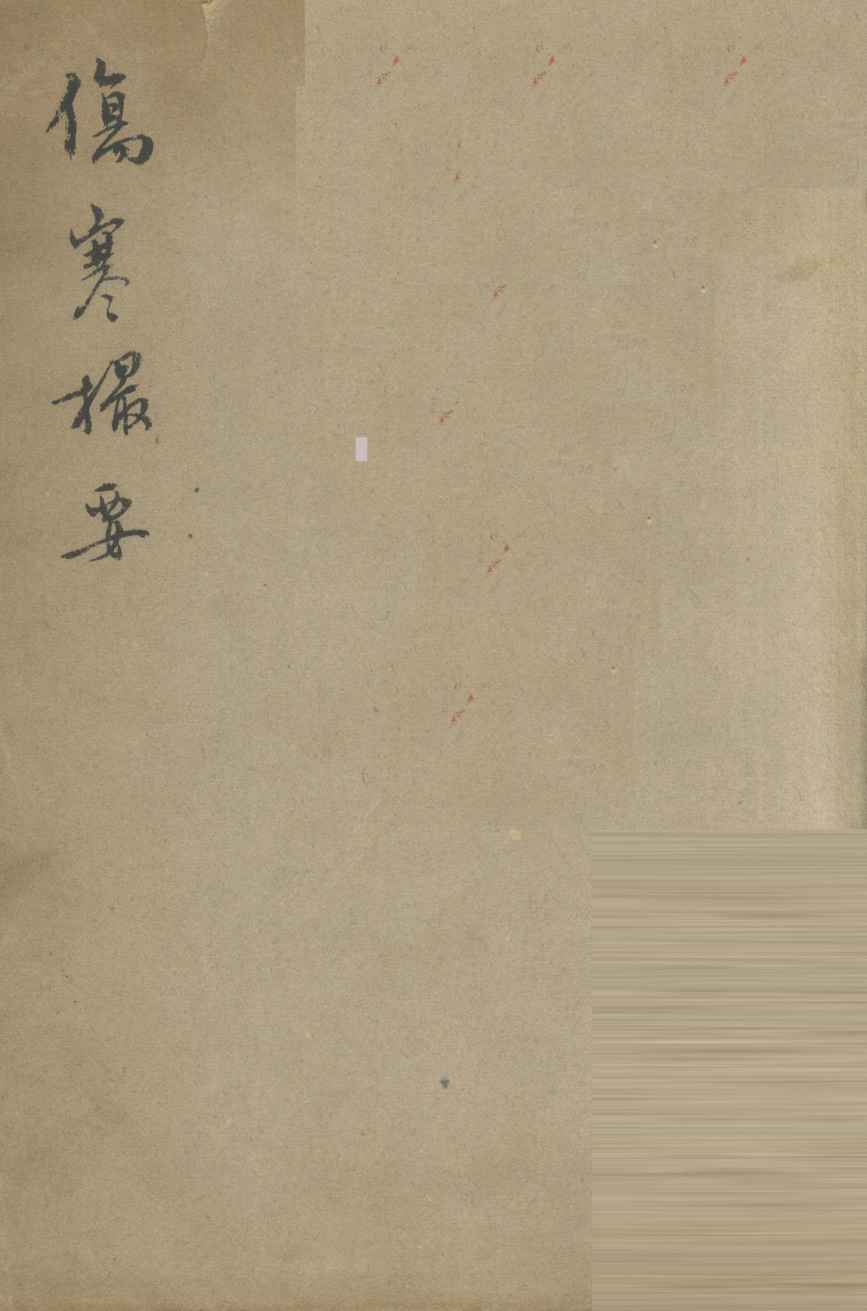 傷寒撮要